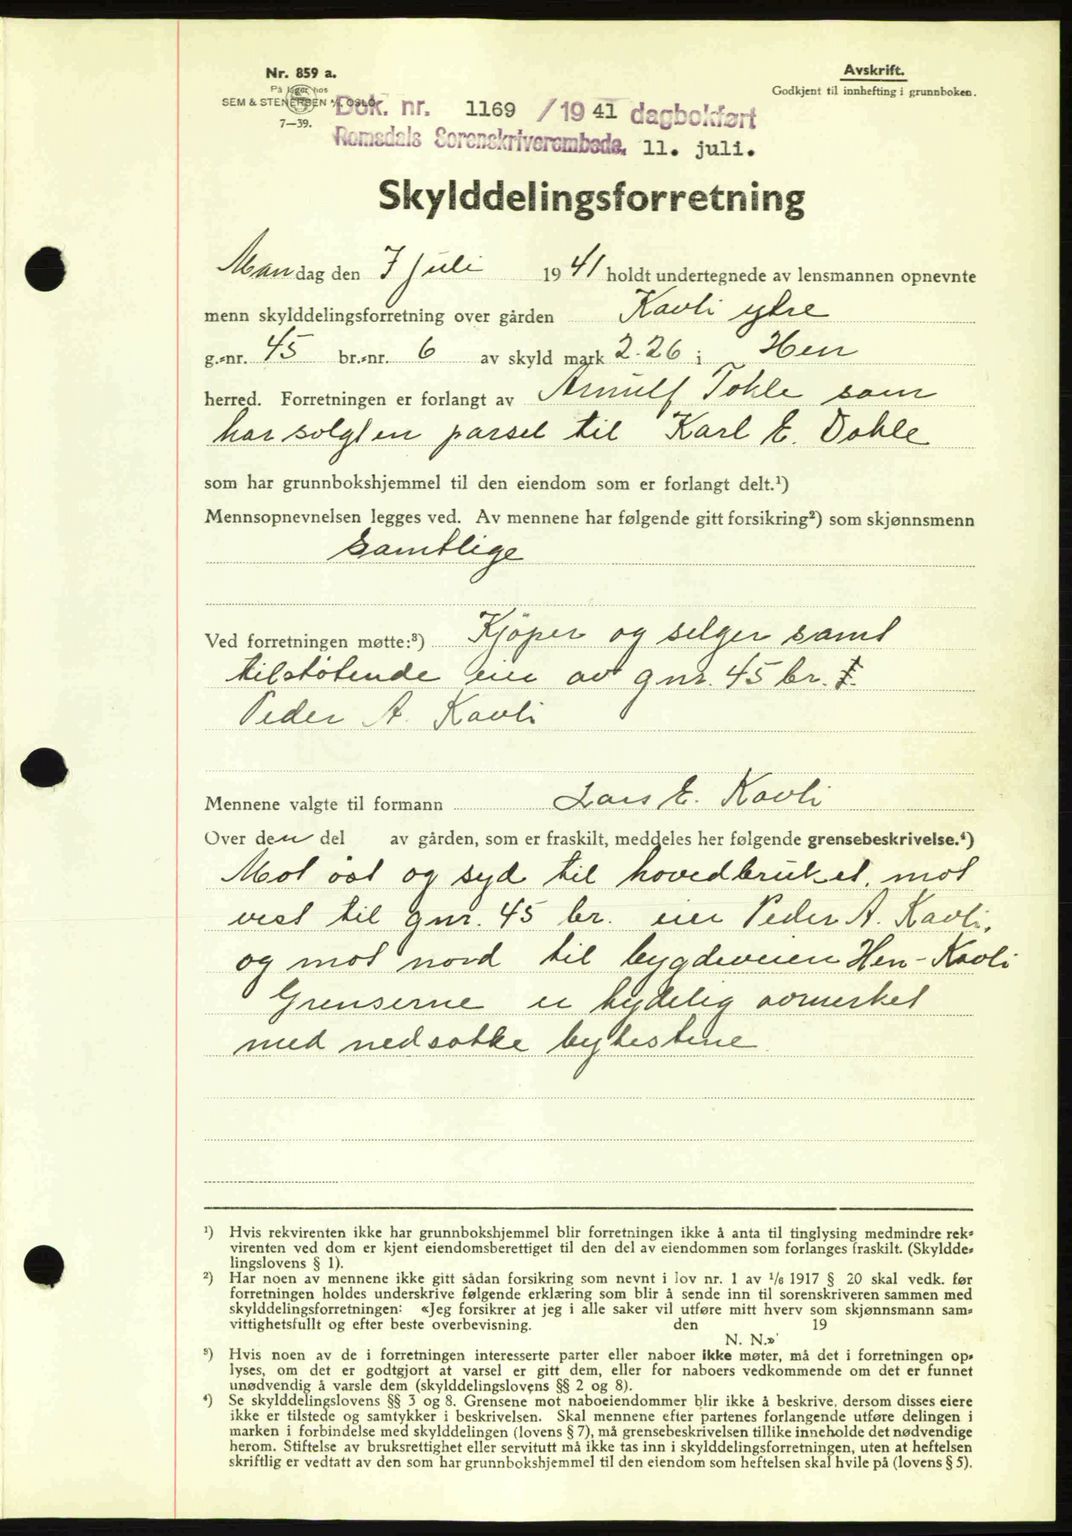 Nr. 859 a.
På lager hos
SEM & STENERSEN A/S OSLO
7—39.
Avskrift.
Godkjent til innhefting i grunnboken.
Dok. nr. 1169 / 19 41 dagbokført
Romsdals Sorenskriverembede, 11. juli.
Skylddelingsforretning
Mandag den 7 juli 19 41 holdt undertegnede av lensmannen opnevnte
menn skylddelingsforretning over gården Kavli ytre
g.-nr. 45 br.-nr. 6 av skyld mark 2.26 i Hen
herred. Forretningen er forlangt av Arnulf Tokle som
har solgt en parsel til Karl E. Dahle
som har grunnbokshjemmel til den eiendom som er forlangt delt.¹)
Mennsopnevnelsen legges ved. Av mennene har følgende gitt forsikring²) som skjønnsmenn
samtlige
Ved forretningen møtte:³) Kjöper og selger samt
tilstøtende eier av gnr. 45 br.
Peder A. Kavli
Mennene valgte til formann Lars E. Kavli
Over den del av gården, som er fraskilt, meddeles her følgende grensebeskrivelse.⁴)
Mot öst og syd til hovedbruket, mot
vest til gnr. 45 br. eier Peder A. Kavli,
og mot nord til bygdeveien Hen-Kavli
Grenserne er tydelig avmerket
med nedsatte bytestene
¹) Hvis rekvirenten ikke har grunnbokshjemmel blir forretningen ikke å anta til tinglysing medmindre rek-
virenten ved dom er kjent eiendomsberettiget til den del av eiendommen som forlanges fraskilt. (Skyldde-
lingslovens § 1).
²) Har noen av mennene ikke gitt sådan forsikring som nevnt i lov nr. 1 av 1/6 1917 § 20 skal vedk. før
forretningen holdes underskrive følgende erklæring som blir å sende inn til sorenskriveren sammen med
skylddelingsforretningen: «Jeg forsikrer at jeg i alle saker vil utføre mitt hverv som skjønnsmann sam-
vittighetsfullt og efter beste overbevisning. den 19
N. N.»
³) Hvis noen av de i forretningen interesserte parter eller naboer ikke møter, må det i forretningen op-
lyses, om det er godtgjort at varsel er gitt dem, eller for naboers vedkommende om det er funnet
unødvendig å varsle dem (skylddelingslovens §§ 2 og 8).
⁴) Se skylddelingslovens §§ 3 og 8. Grensene mot naboeiendommer blir ikke å beskrive, dersom disses eiere
ikke er tilstede og samtykker i beskrivelsen. Skal mennene efter partenes forlangende utføre delingen i
marken i forbindelse med skylddelingen (lovens § 7), må grensebeskrivelsen tillike inneholde det nødvendige
herom. Stiftelse av bruksrettighet eller servitutt må ikke tas inn i skylddelingsforretningen, uten at heftelsen
skriftlig er vedtatt av den som har grunnbokshjemmel til den eiendom som heftelsen skal hvile på (lovens § 5).